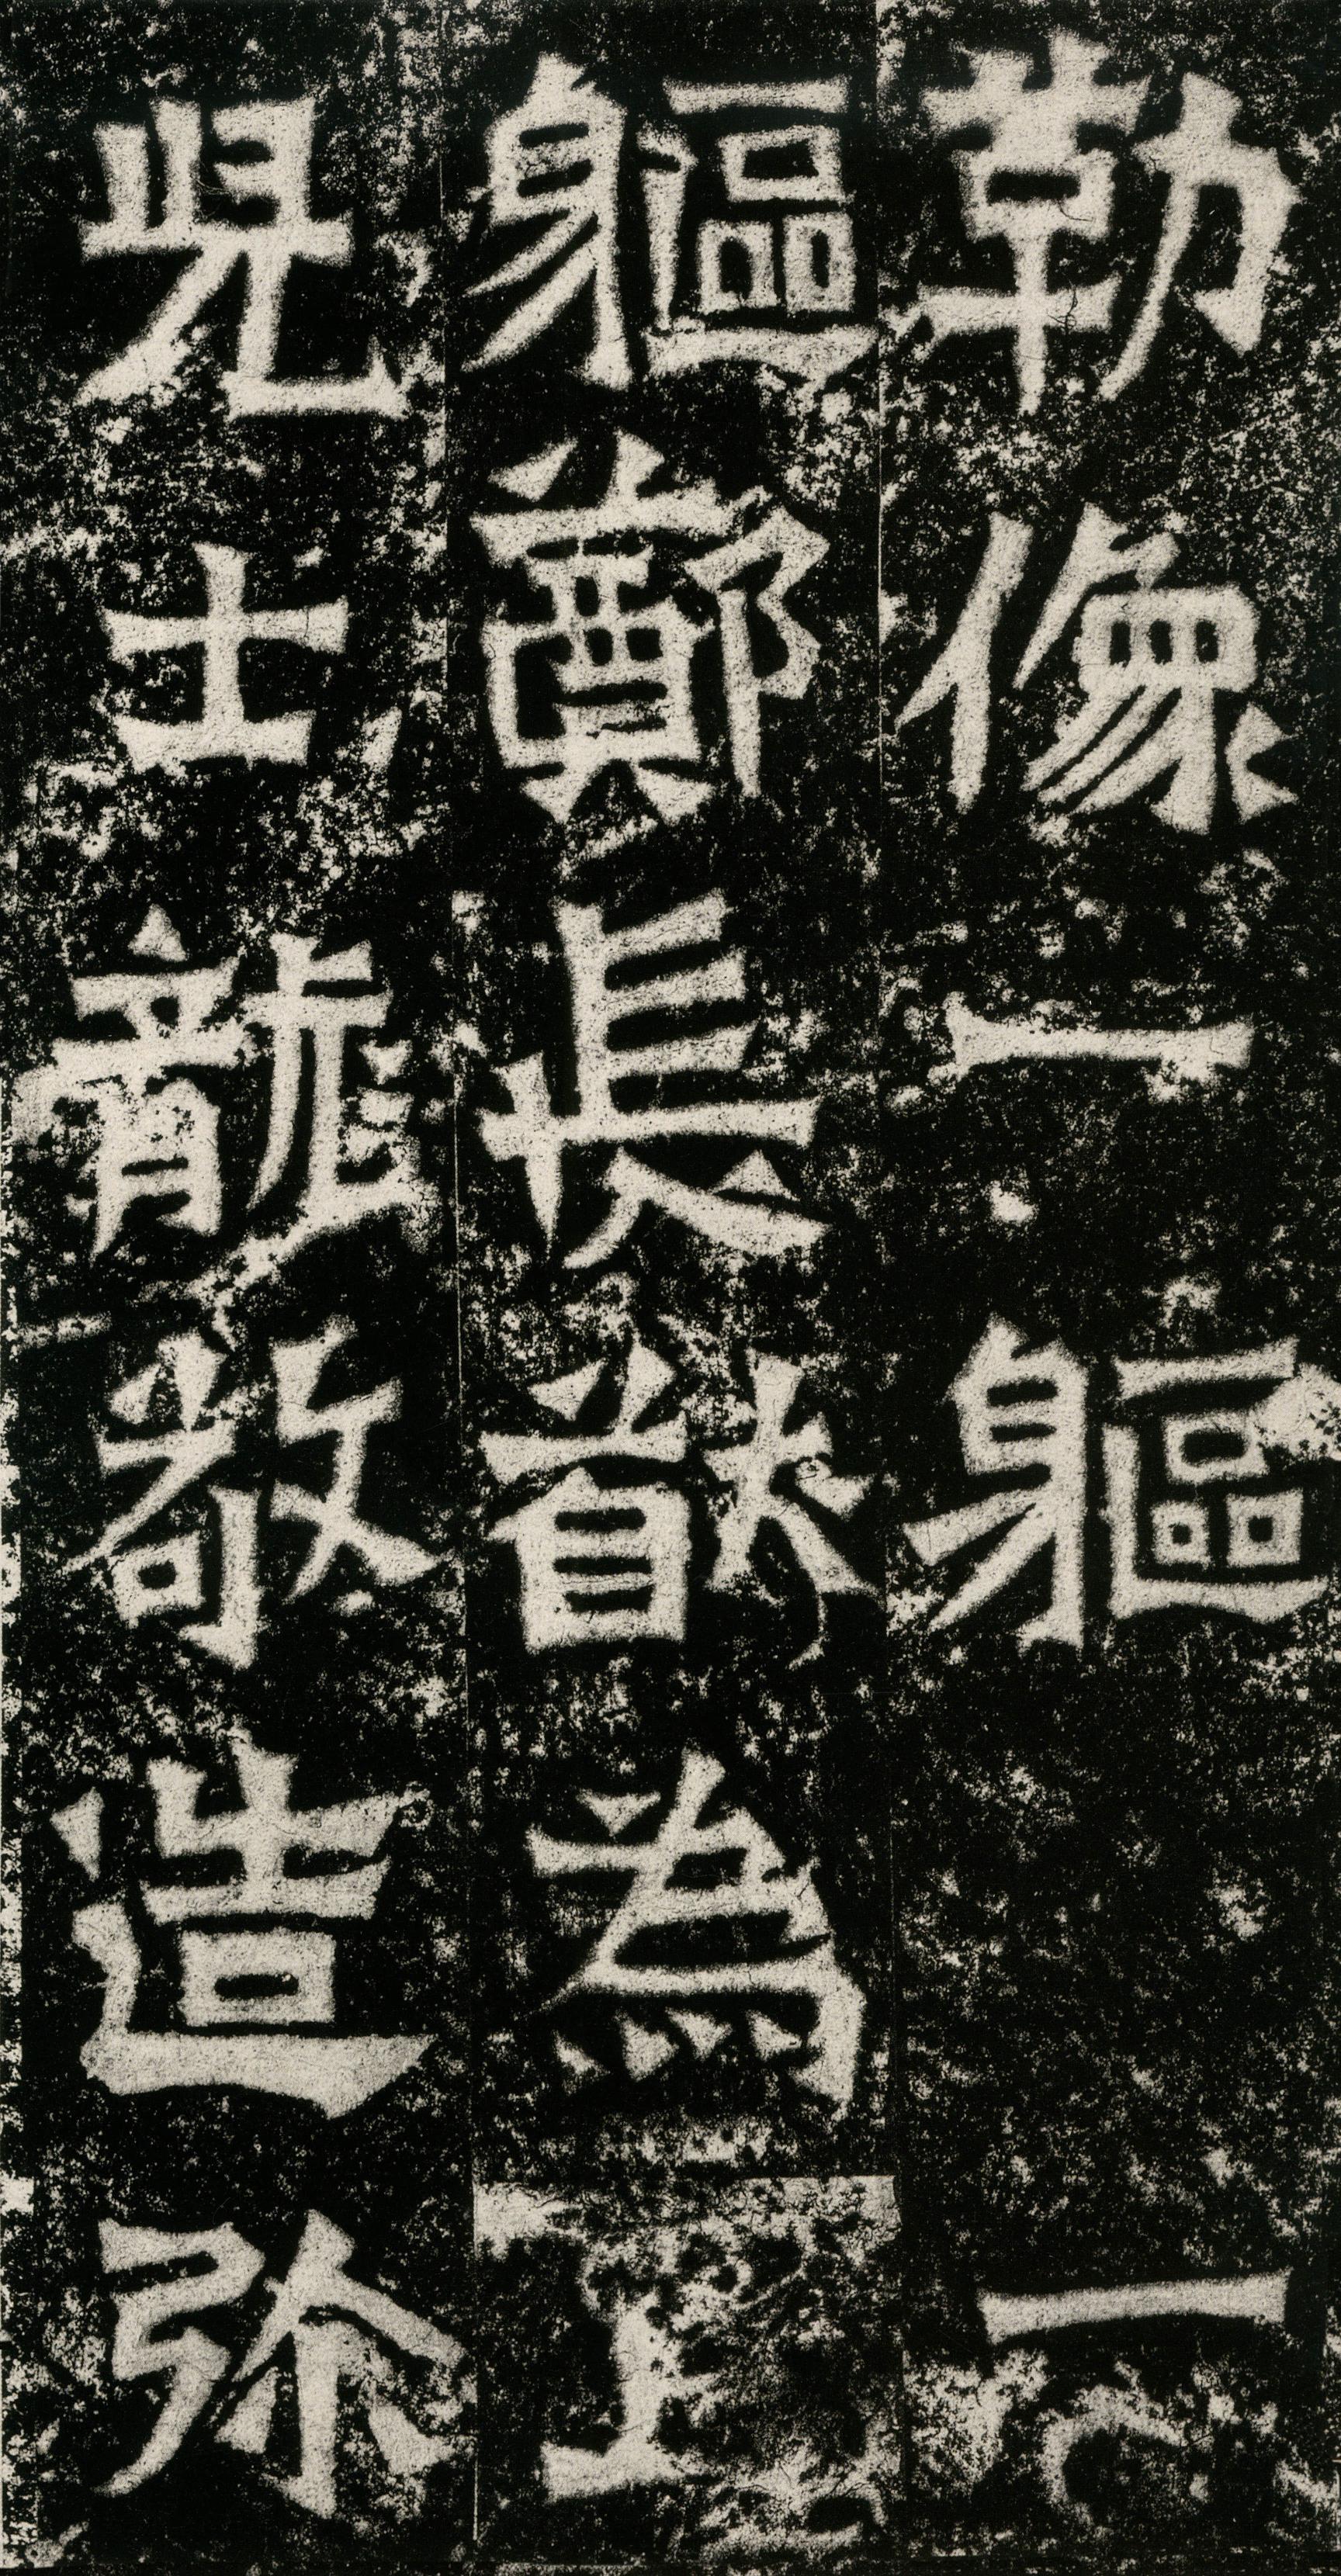 勒像一軀
軀鄭長猷為
兒士龍敬造弥